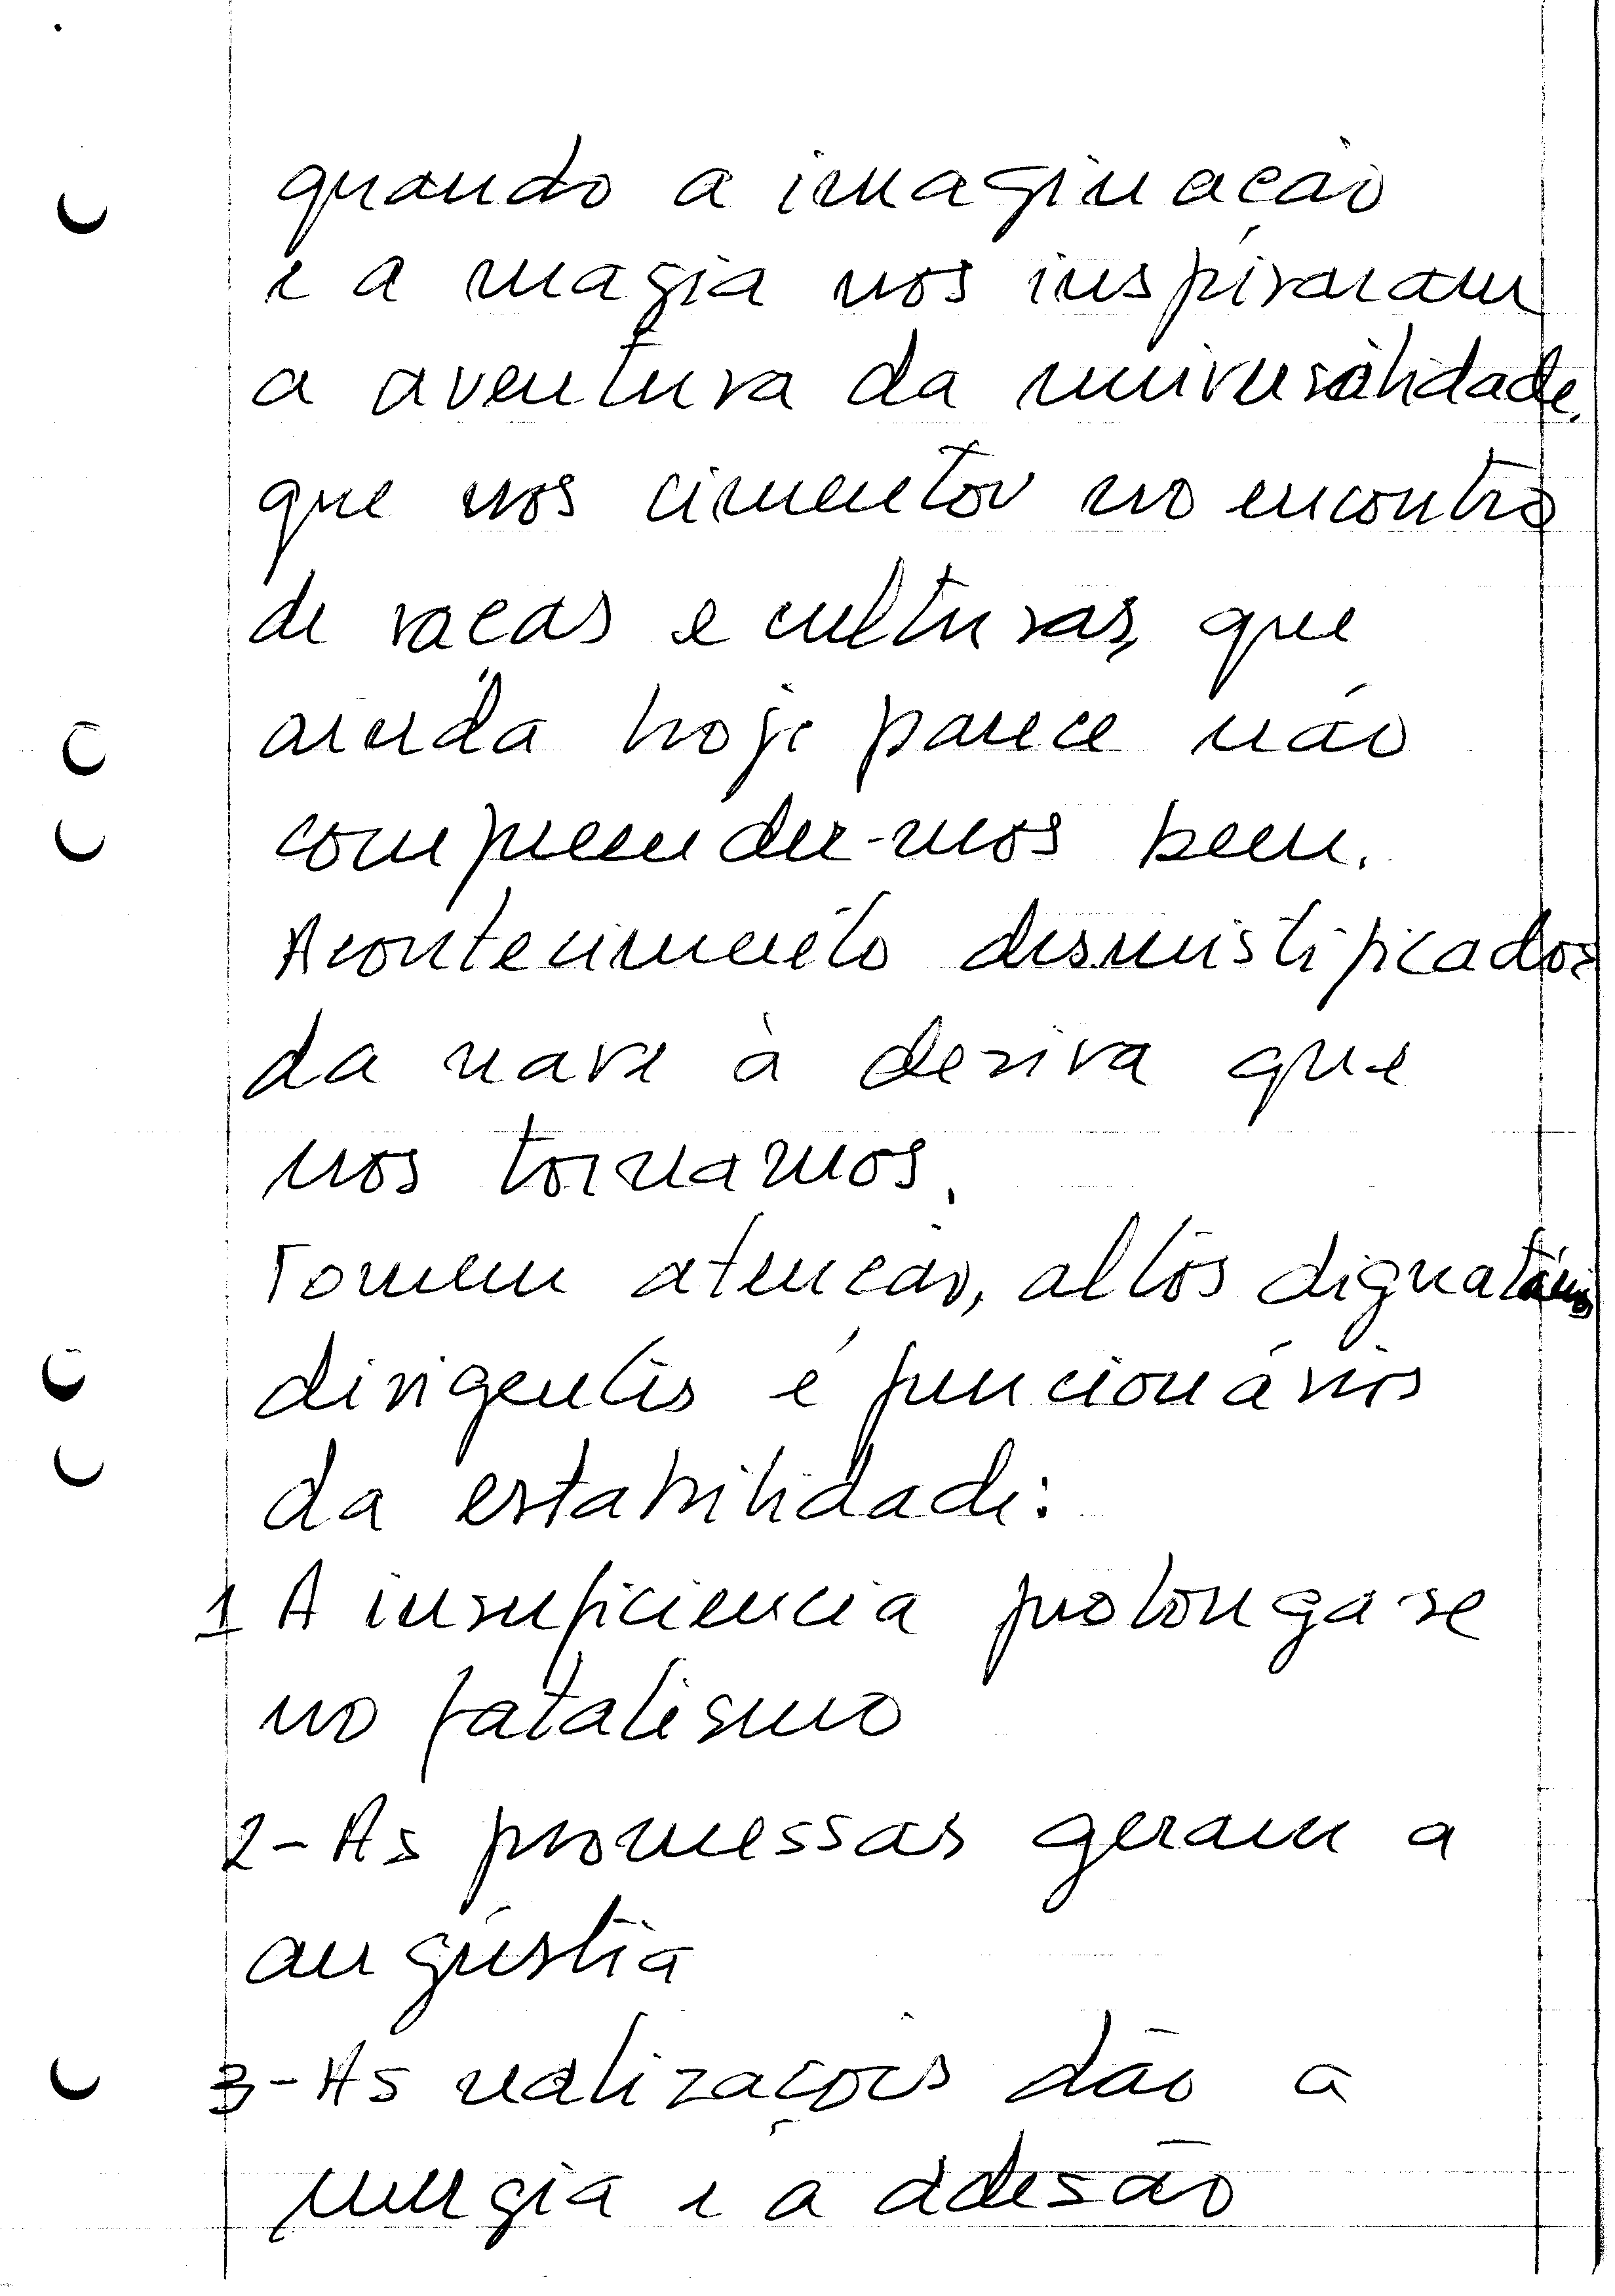 quando a imaginação
e a magia nos inspiraram
a aventura da universalidade,
que nos cimentou no encontro
de raças e culturas, que
ainda hoje parece não
compreender-mos bem.
Acontecimento desmistificador
da nave à deriva que
nos tornamos.
Tomem atenção, altos dignatários
dirigentes e funcionários
da estabilidade:
1 A insuficiencia prolonga-se
no fatalismo
2- As promessas geram a
angústia
3- As realizações dão a
energia e a adesão